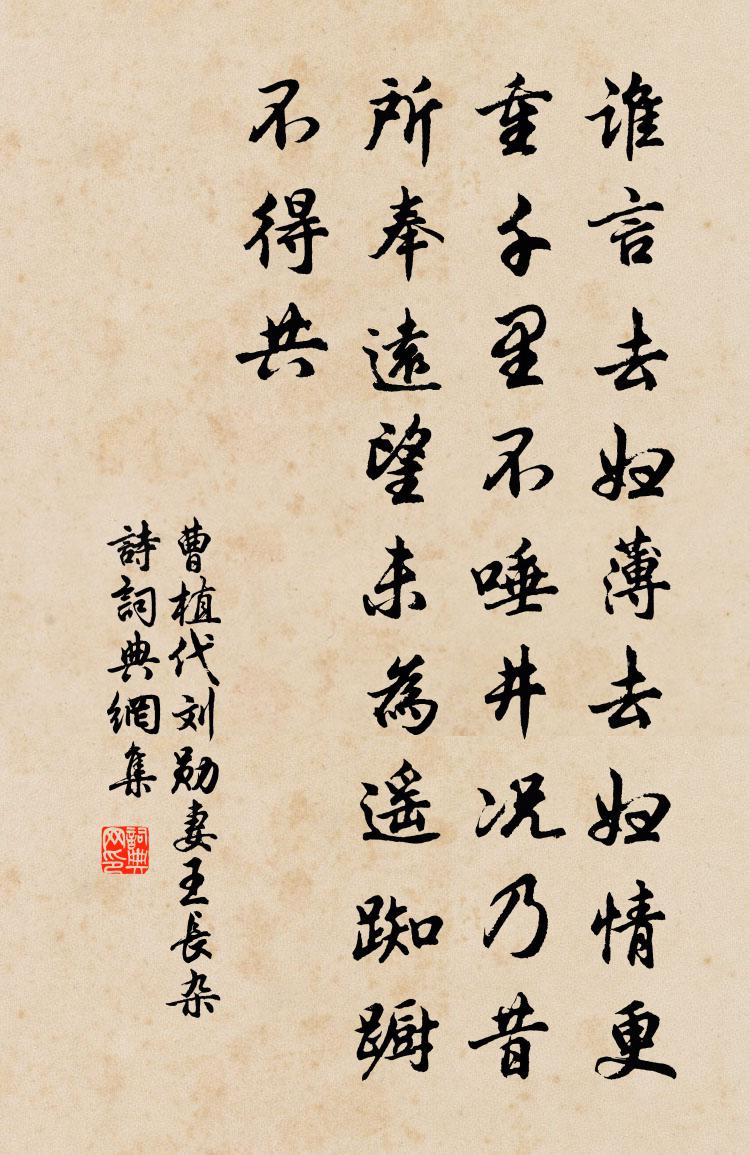 谁言去妇薄去妇情更
重千里不唾井况乃昔
所奉遠望未為遥踟
蹰不得共
曹植代刘勋妻王長杂
詩詞典網集
詞典网印